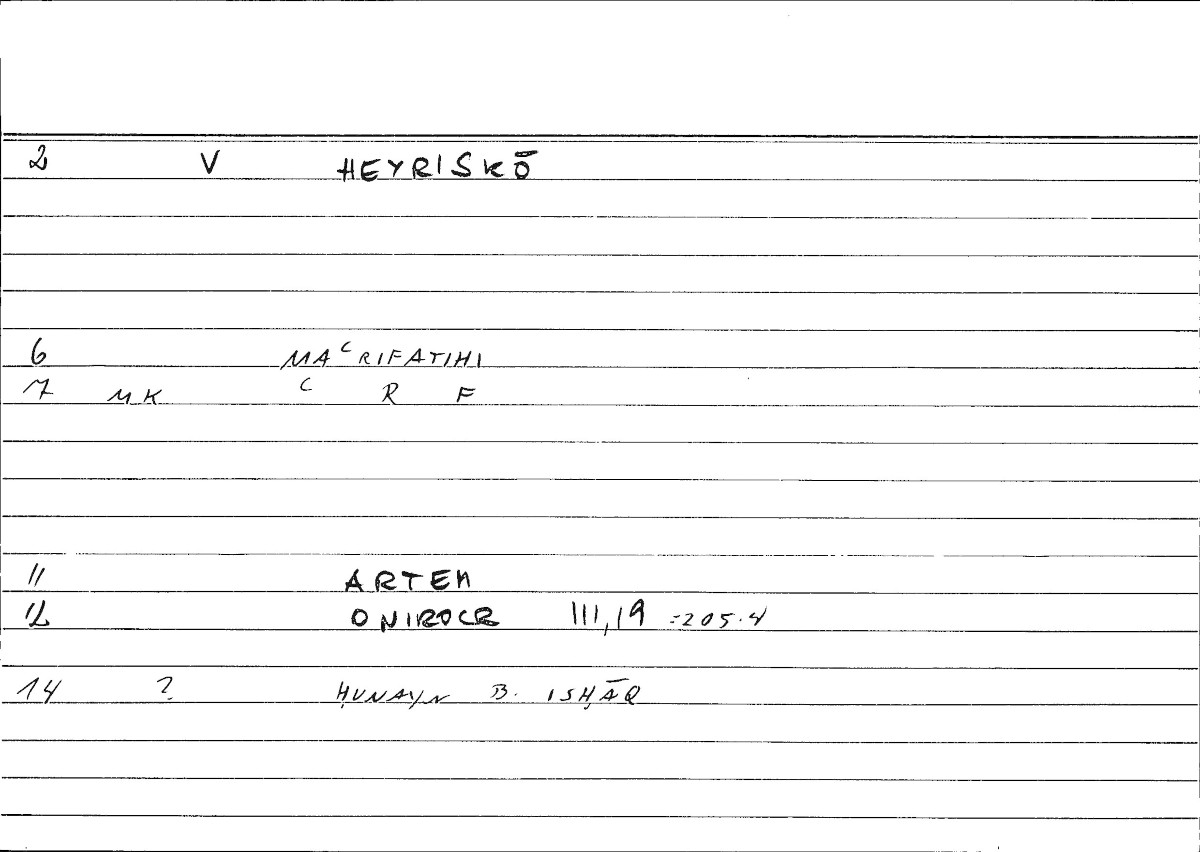 2 V HEYRISKŌ
6 MAᶜRIFATIHI
7 MK ᶜ R F
11 ARTEM
12 ONIROCR III,19 =205.4
14 ? ḤUNAYN B. ISḤĀQ